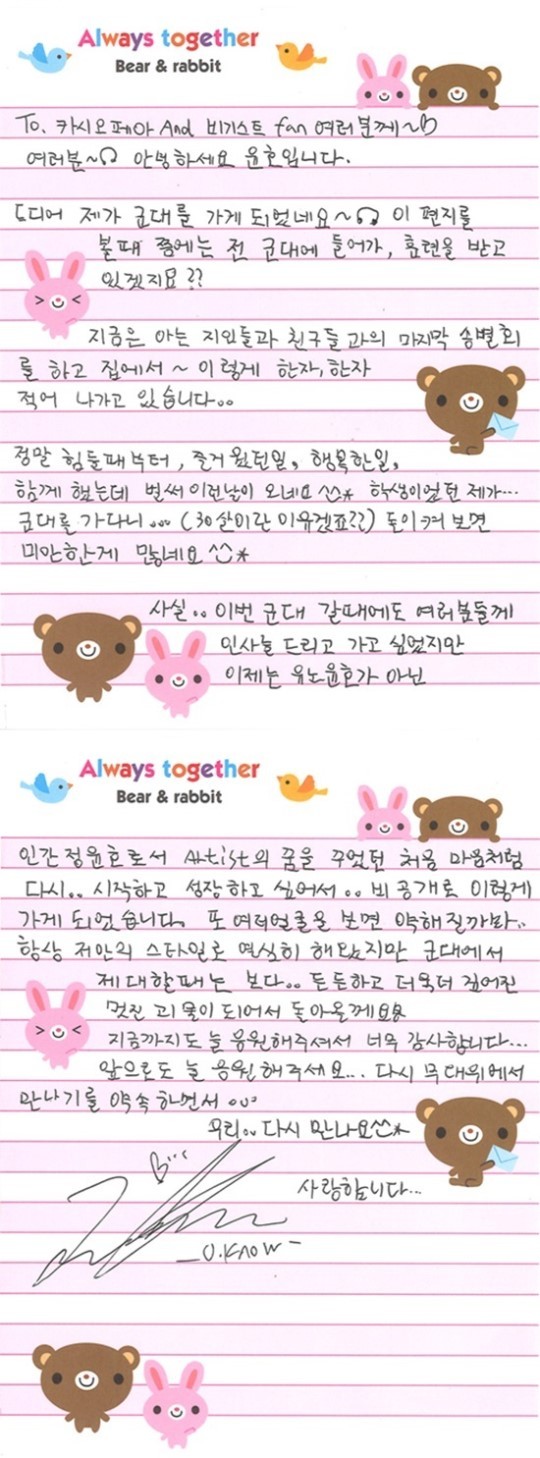 Always together
Bear & rabbit
To. 카시오페아 And 비기스트 fan 여러분께~♡
여러분~♫ 안녕하세요 윤호입니다.
드디어 제가 군대를 가게 되었네요~♫ 이 편지를
볼때 쯤에는 전 군대에 들어가, 훈련을 받고
있겠지요??
지금은 아는 지인들과 친구들과의 마지막 송별회
를 하고 집에서~ 이렇게 한자, 한자
적어 나가고 있습니다..
정말 힘들때부터, 즐거웠던일, 행복한일,
함께 했는데 벌써 이런날이 오네요 ^^* 학생이었던 제가...
군대를 가다니... (30살이란 이유겠죠??) 돌이켜 보면
미안한게 많네요 ^^*
사실.. 이번 군대 갈때에도 여러분들께
인사늘 드리고 가고 싶었지만
이제는 유노윤호가 아닌
Always together
Bear & rabbit
인간 정윤호로서 Artist의 꿈을 꾸었던 처음 마음처럼
다시.. 시작하고 성장하고 싶어서.. 비공개로 이렇게
가게 되었습니다. 또 여러얼굴을 보면 약해질까봐..
항상 저만의 스타일로 열심히 해왔지만 군대에서
제대할때는 보다.. 든든하고 더욱더 깊어진
멋진 괴물이 되어서 돌아올께요
지금까지도 늘 응원해주셔서 너무 감사합니다...
앞으로도 늘 응원해주세요... 다시 무대위에서
만나기를 약속하면서...
우리.. 다시 만나요^^*
사랑합니다...
-U.Know-